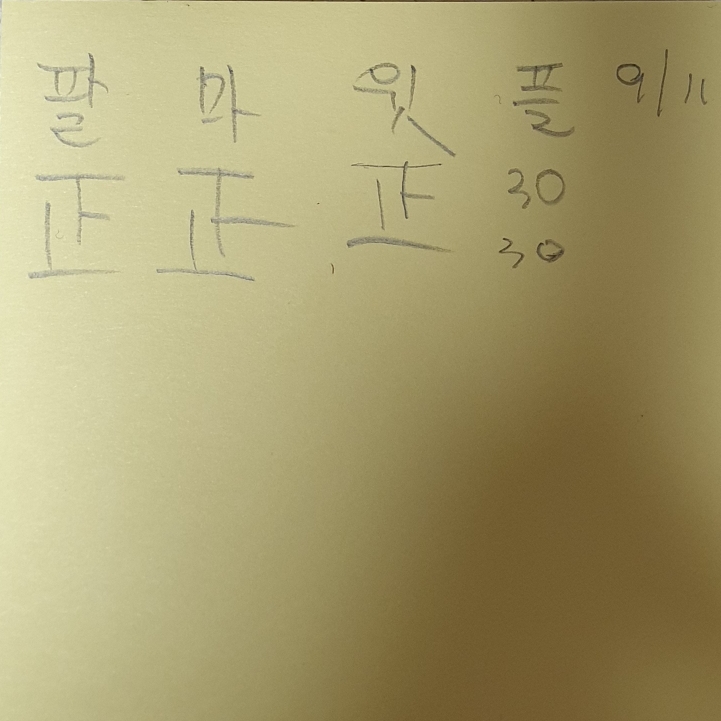 팔 마 윗 플 9/11
正 正 正 30
30